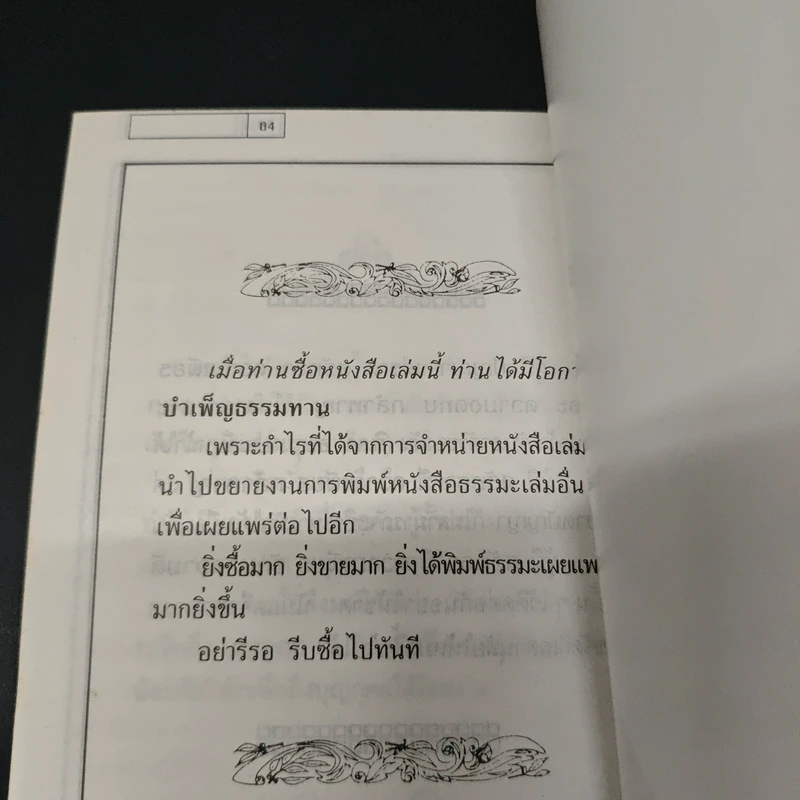 64
เมื่อท่านซื้อหนังสือเล่มนี้ ท่านได้มีโอก
บำเพ็ญธรรมทาน
เพราะกำไรที่ได้จากการจำหน่ายหนังสือเล่ม
นำไปขยายงานการพิมพ์หนังสือธรรมะเล่มอื่น
เพื่อเผยแพร่ต่อไปอีก
ยิ่งซื้อมาก ยิ่งขายมาก ยิ่งได้พิมพ์ธรรมะเผยแพ
มากยิ่งขึ้น
อย่ารีรอ รีบซื้อไปทันที